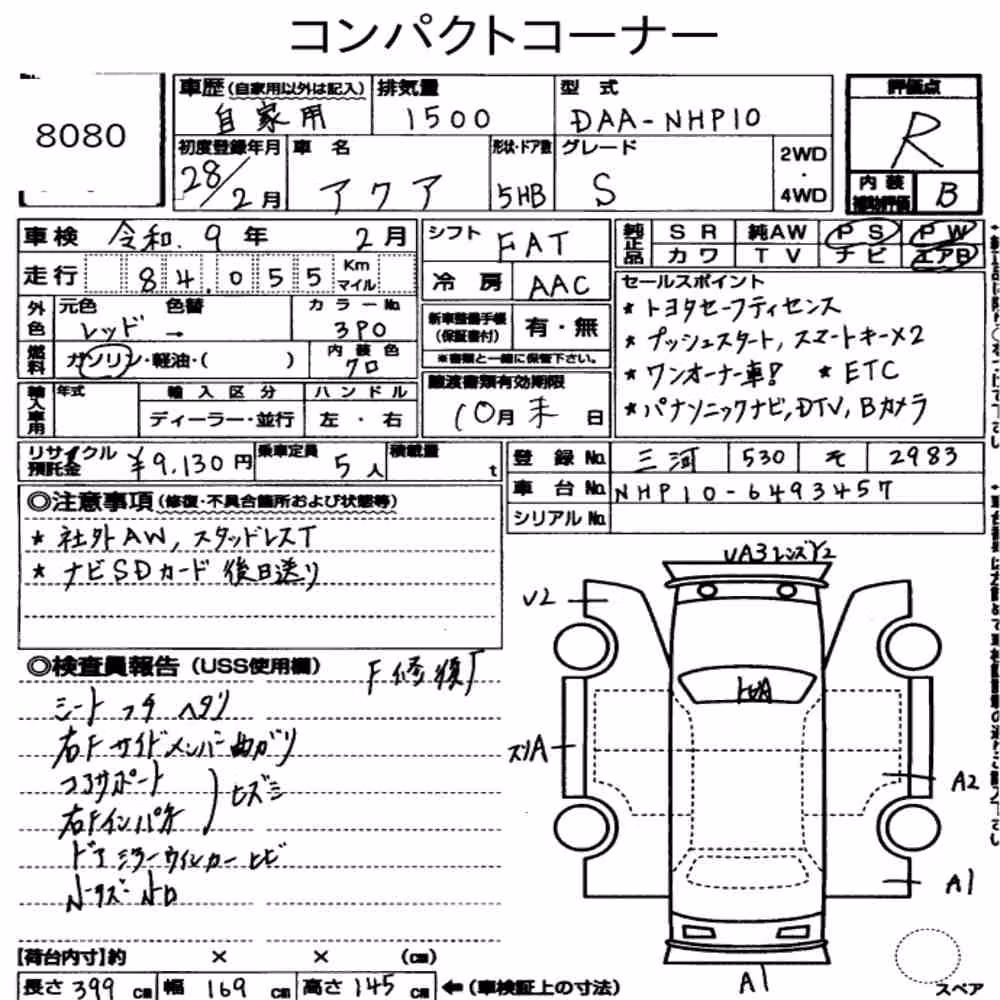 コンパクトコーナー
8080
車歴(自家用以外は記入) 排気量 型式 評価点
自家用 1500 DAA-NHP10 R
初度登録年月 車名 形状・ドア数 グレード 2WD・4WD 内装補助評価 B
28/2月 アクア 5HB S
車検 令和.9年 2月
走行 84,055 Km マイル
シフト FAT
冷房 AAC
純正品 SR 純AW PS PW
カワ TV ナビ エアB
外色 元色 色替 カラーNo
レッド → 3P0
燃料 ガソリン・軽油・( ) 内装色 クロ
新車整備手帳(保証書付) 有・無
※書類と一緒に保管下さい。
輸入車用 年式 輸入区分 ハンドル
ディーラー・並行 左・右
譲渡書類有効期限
10月末日
セールスポイント
* トヨタセーフティセンス
* プッシュスタート,スマートキー×2
* ワンオーナー車! * ETC
* パナソニックナビ,DTV,Bカメラ
リサイクル預託金 ¥9,130円 乗車定員 5人 積載量 t
登録No. 三河 530 そ 2983
車台No. NHP10-6493457
シリアルNo.
◎注意事項(修復・不具合箇所および状態等)
* 社外AW,スタッドレスT
* ナビSDカード後日送り
◎検査員報告(USS使用欄)
F修復
シートコゲ ヘタリ
右Fサイドメンバー曲がり
コアサポート
右Fインパネ ) ヒズミ
ドアミラーウィンカーヒビ
UA3 レンズY2
U2
スリA
A2
A1
A1
スペア
【荷台内寸】約 × × (cm)
長さ 399 cm 幅 169 cm 高さ 145 cm ←(車検証上の寸法)